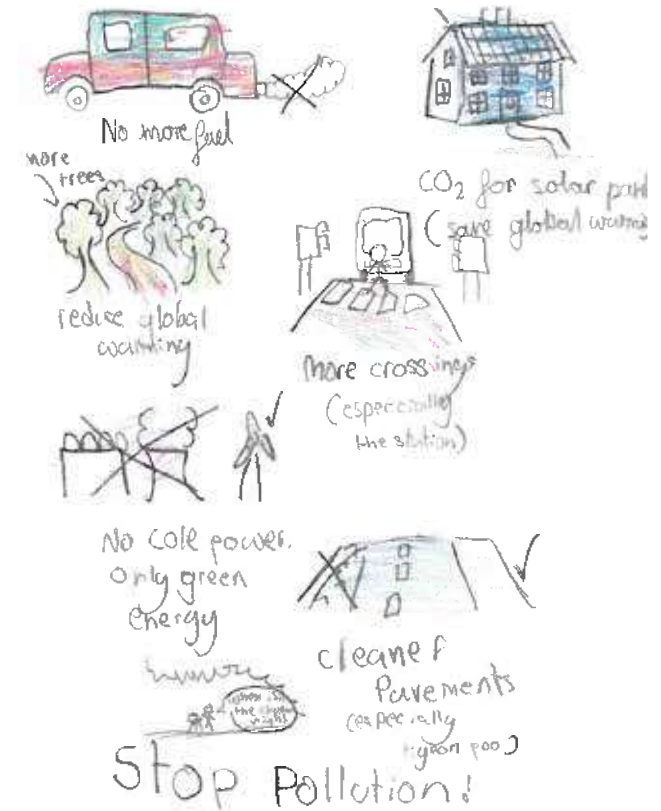 No more fuel
more
trees
CO2 for solar
(save global warming
reduce global
warming
More crossings
(especcially
the station)
No Cole power.
Only green
energy
cleaner
Pavements
(especially
poo)
the
Stop Pollution!